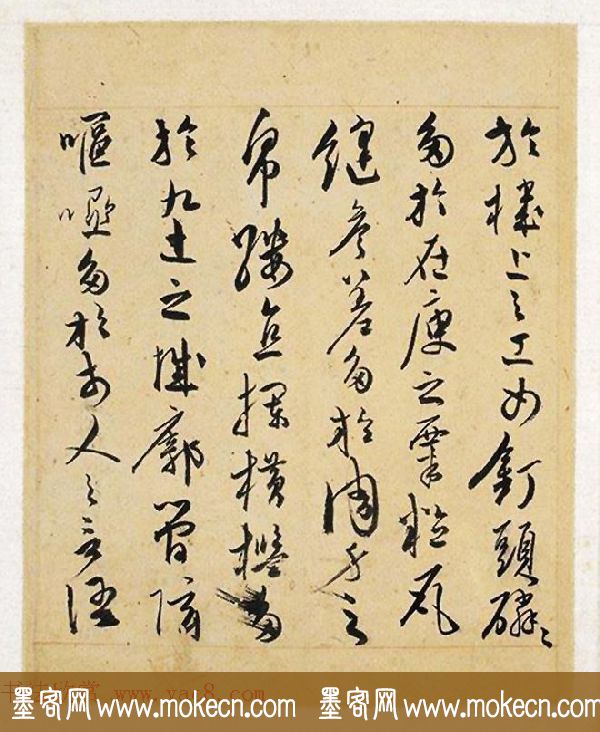 於機上之工女釘頭磷〻
多於在庾之粟粒瓦
縫參差多於周身之
帛縷直欄橫檻多
於九土之城郭管弦
嘔啞多於市人之言語
书法欣赏 www.yac8.com
墨客网 www.mokecn.com 墨客网 www.mokecn.com